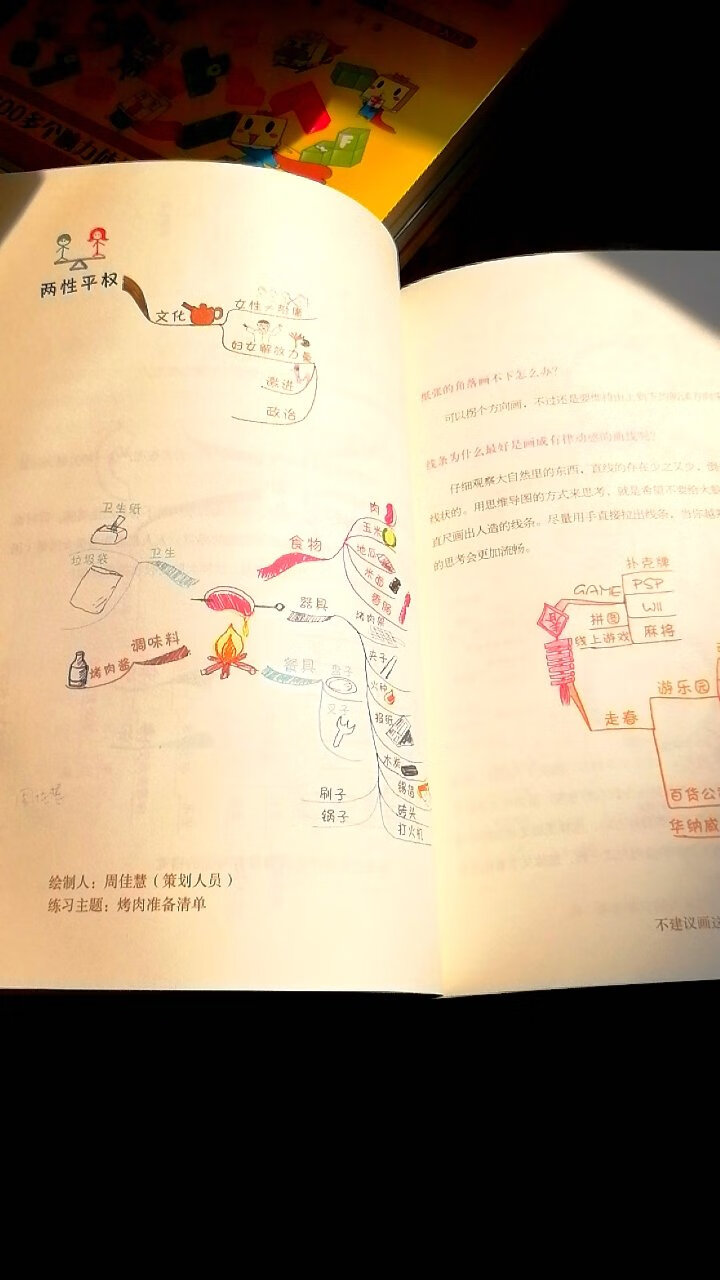 00多个脑力
两性平权
文化
女性≠阴康
妇女解放力量
激进
政治
卫生纸
垃圾袋
卫生
调味料
烤肉酱
食物
肉
玉米
地瓜
米血
香肠
器具
烤肉架
夹子
火种
报纸
木炭
锡箔
砖头
打火机
餐具
盘子
叉子
刷子
锅子
绘制人：周佳慧（策划人员）
练习主题：烤肉准备清单
纸张的角落画不下怎么办？
可以拐个方向画，不过还是要
线条为什么最好是画成有律动感的曲线呢？
仔细观察大自然里的东西，直线的存在少之又少，倒
线状的。用思维导图的方式来思考，就是希望不要给大脑
直尺画出人造的线条。尽量用手直接拉出线条，当你越
的思考会更加流畅。
GAME
扑克牌
PSP
WII
麻将
拼图
线上游戏
走春
游乐园
百货公
华纳威
不建议画这